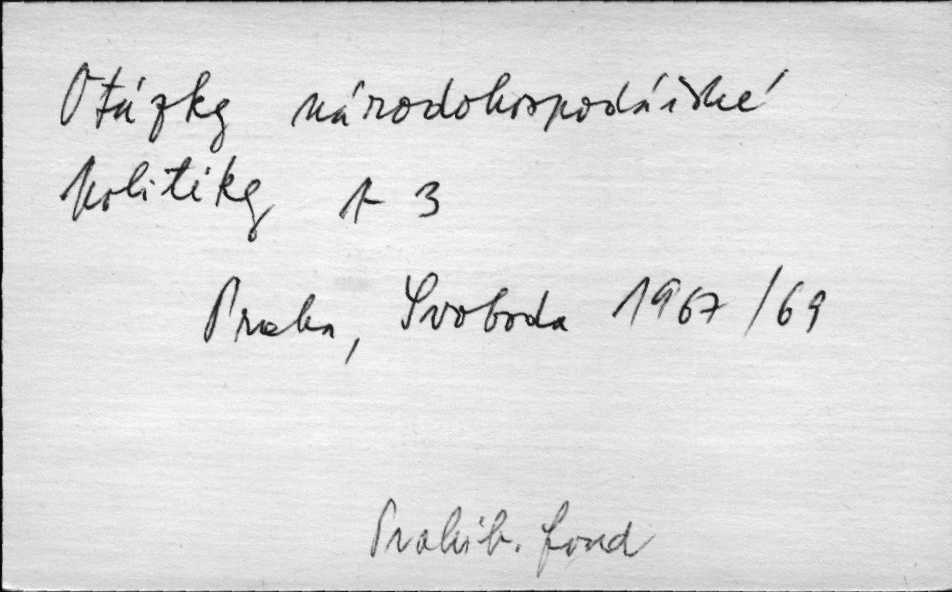 Otázky národohospodářské
politiky 1-3
Praha, Svoboda 1967/69
Prohib. fond